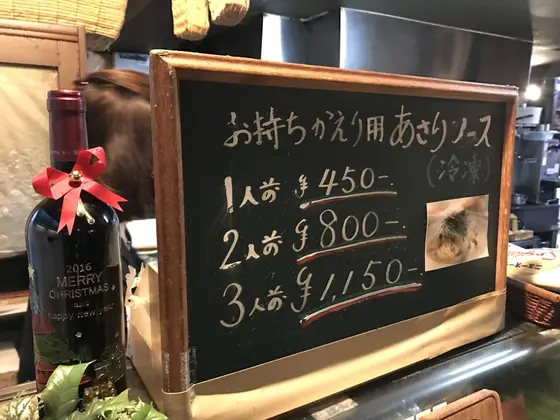 お持ちかえり用 あさりソース
(冷凍)
1人前 ¥450-
2人前 ¥800-
3人前 ¥1,150-
2016
MERRY
CHRISTMAS
and
happy new year